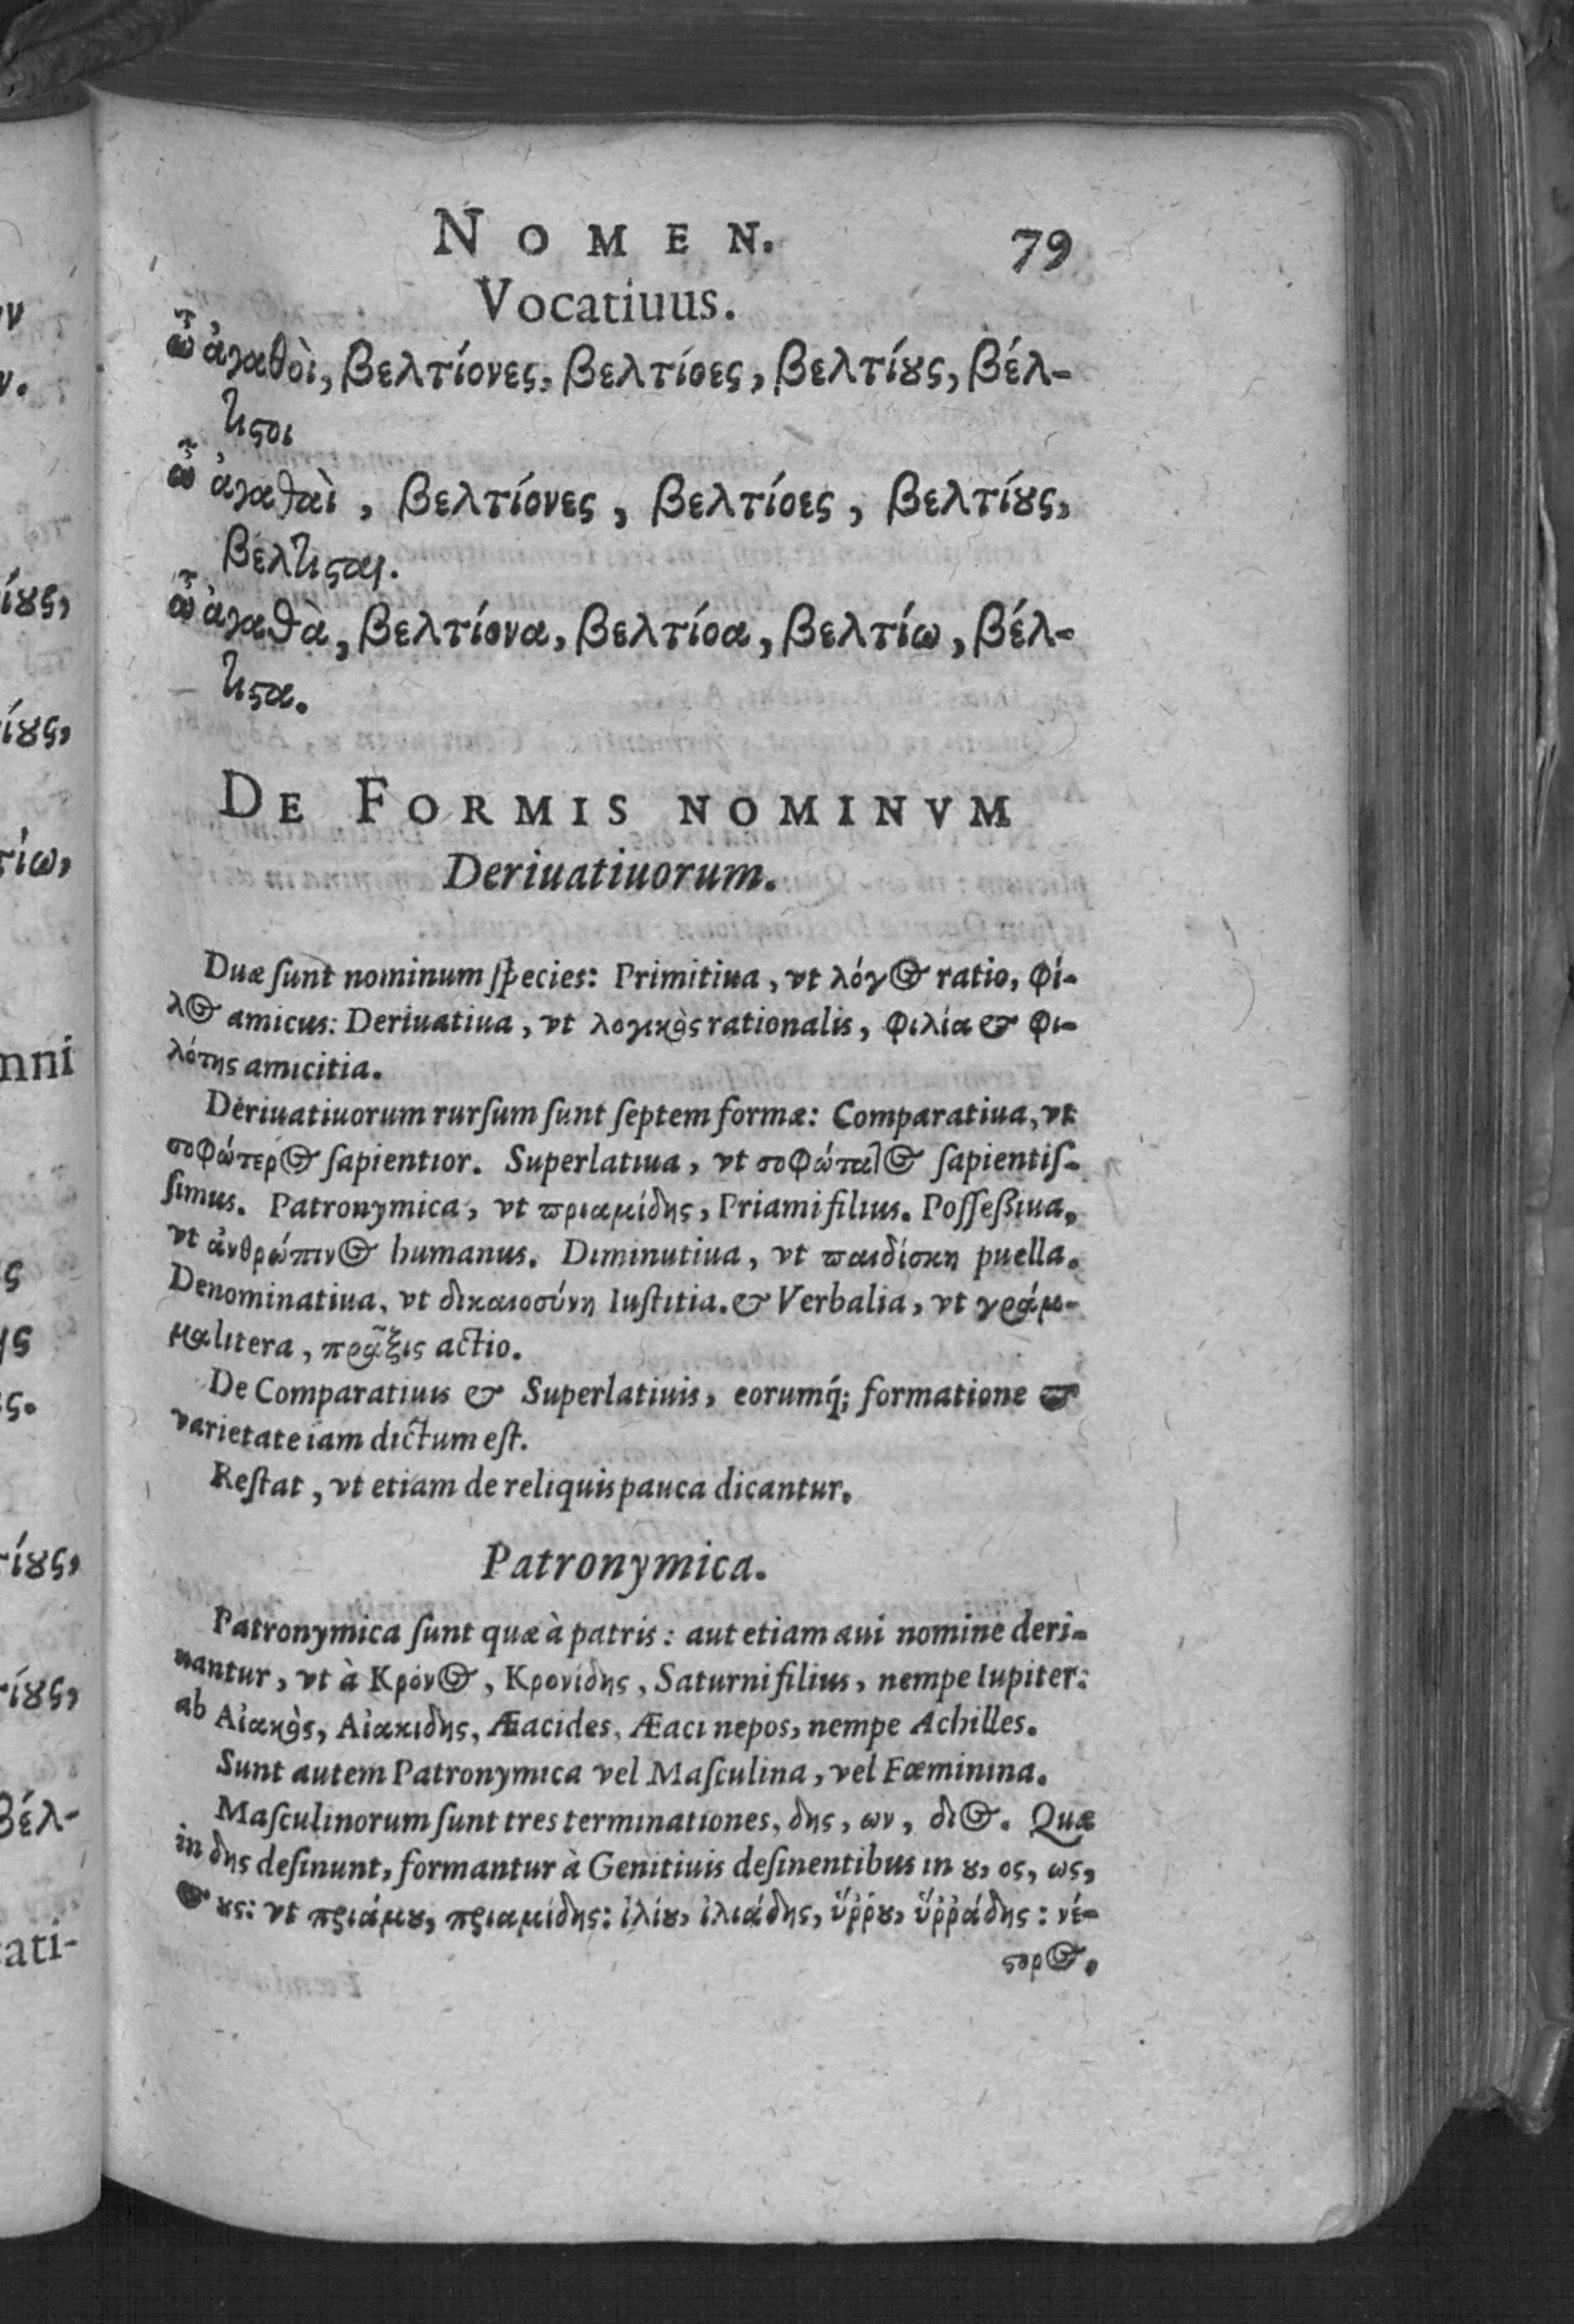 NOMEN. 79
Vocatiuus.
ὦ ἀγαθοὶ, βελτίονες, βελτίοες, βελτίȣς, βέλ-
τιϛοι
ὦ ἀγαθαὶ, βελτίονες, βελτίοες, βελτίȣς,
βέλτιϛαι.
ὦ ἀγαθὰ, βελτίονα, βελτίοα, βελτίω, βέλ-
τιϛα.
DE FORMIS NOMINVM
Deriuatiuorum.
Duæ ſunt nominum ſpecies: Primitiua, vt λόγος ratio, φί-
λος amicus: Deriuatiua, vt λογικὸς rationalis, φιλία & φι-
λότης amicitia.
Deriuatiuorum rurſum ſunt ſeptem formæ: Comparatiua, vt
σοφώτερος ſapientior. Superlatiua, vt σοφώτατος ſapientiſ-
ſimus. Patronymica, vt πριαμίδης, Priami filius. Poſſeßiua,
vt ἀνθρώπινος humanus. Diminutiua, vt παιδίσκη puella.
Denominatiua, vt δικαιοσύνη Iuſtitia. & Verbalia, vt γράμ-
μα litera, πρᾶξις actio.
De Comparatiuis & Superlatiuis, eorumq́; formatione &
varietate iam dictum eſt.
Reſtat, vt etiam de reliquis pauca dicantur.
Patronymica.
Patronymica ſunt quæ à patris: aut etiam aui nomine deri-
uantur, vt à Κρόνος, Κρονίδης, Saturni filius, nempe Iupiter:
ab Αἰακὸς, Αἰακιδης, Æacides, Æaci nepos, nempe Achilles.
Sunt autem Patronymica vel Maſculina, vel Fœminina.
Maſculinorum ſunt tres terminationes, δης, ων, διος. Quæ
in δης deſinunt, formantur à Genitiuis deſinentibus in ȣ, ος, ως,
& ȣς: vt πριάμȣ, πριαμίδης: ἰλίȣ, ἰλιάδης, ὕῤῥȣ, ὕῤῥάδης: νέ-
ϛορος.
ίȣς,
ίȣς,
τίω,
mni
ς
ης
ς.
τίȣς,
τίȣς,
βέλ-
cati-